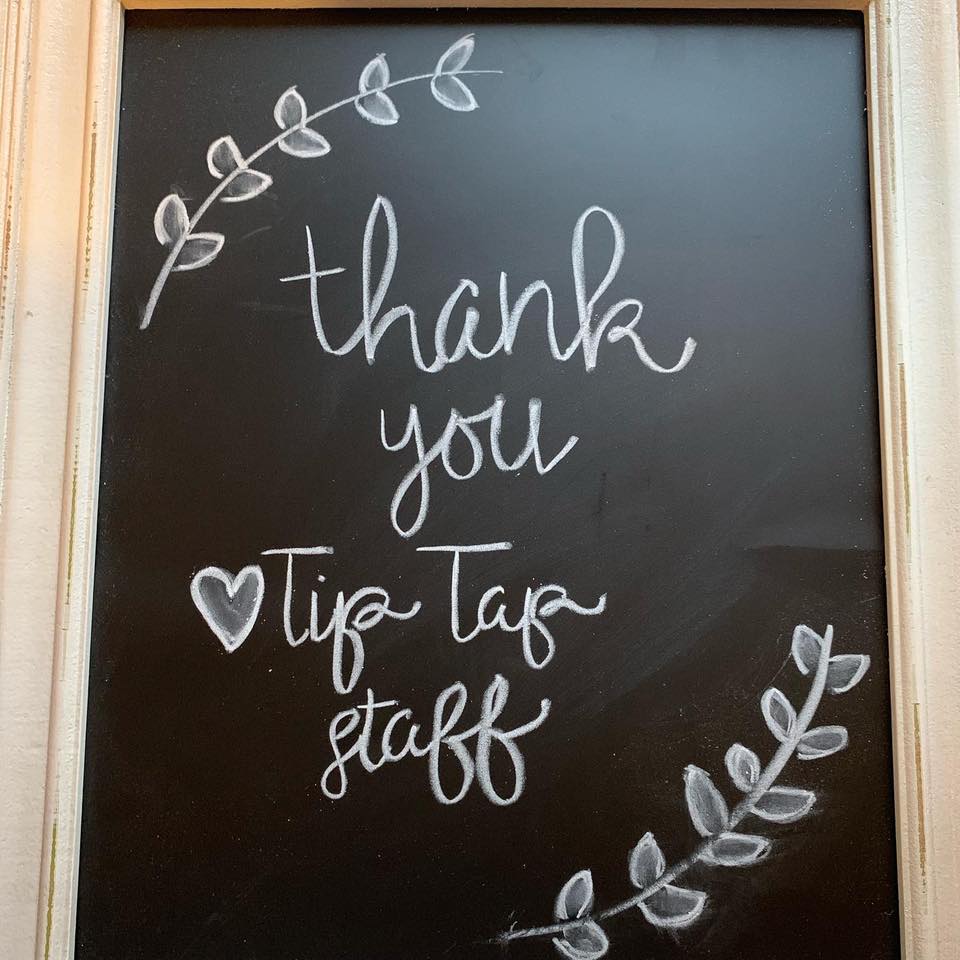 thank
you
♥Tip Tap
staff